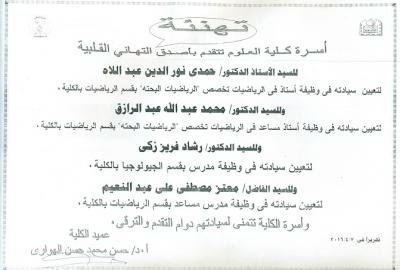 تهنئة
أسرة كلية العلوم تتقدم بأصدق التهاني القلبية
للسيد الأستاذ الدكتور/ حمدى نور الدين عبد اللاه
لتعيين سيادته فى وظيفة أستاذ فى الرياضيات تخصص "الرياضيات البحته" بقسم الرياضيات بالكلية.
وللسيد الدكتور/ محمد عبد الله عبد الرازق
لتعيين سيادته فى وظيفة أستاذ مساعد فى الرياضيات تخصص "الرياضيات البحته" بقسم الرياضيات بالكلية.
وللسيد الدكتور/ رشاد فريز زكى
لتعيين سيادته فى وظيفة مدرس بقسم الجيولوجيا بالكلية.
وللسيد الفاضل/ معتز مصطفى على عبد النعيم
لتعيين سيادته فى وظيفة مدرس مساعد بقسم الرياضيات بالكلية.
وأسرة الكلية تتمنى لسيادتهم دوام التقدم والترقى،
تحريرا فى ٢٠١٦/٤/٧
عميد الكلية
أ.د/ حسن محمد حسن الهوارى